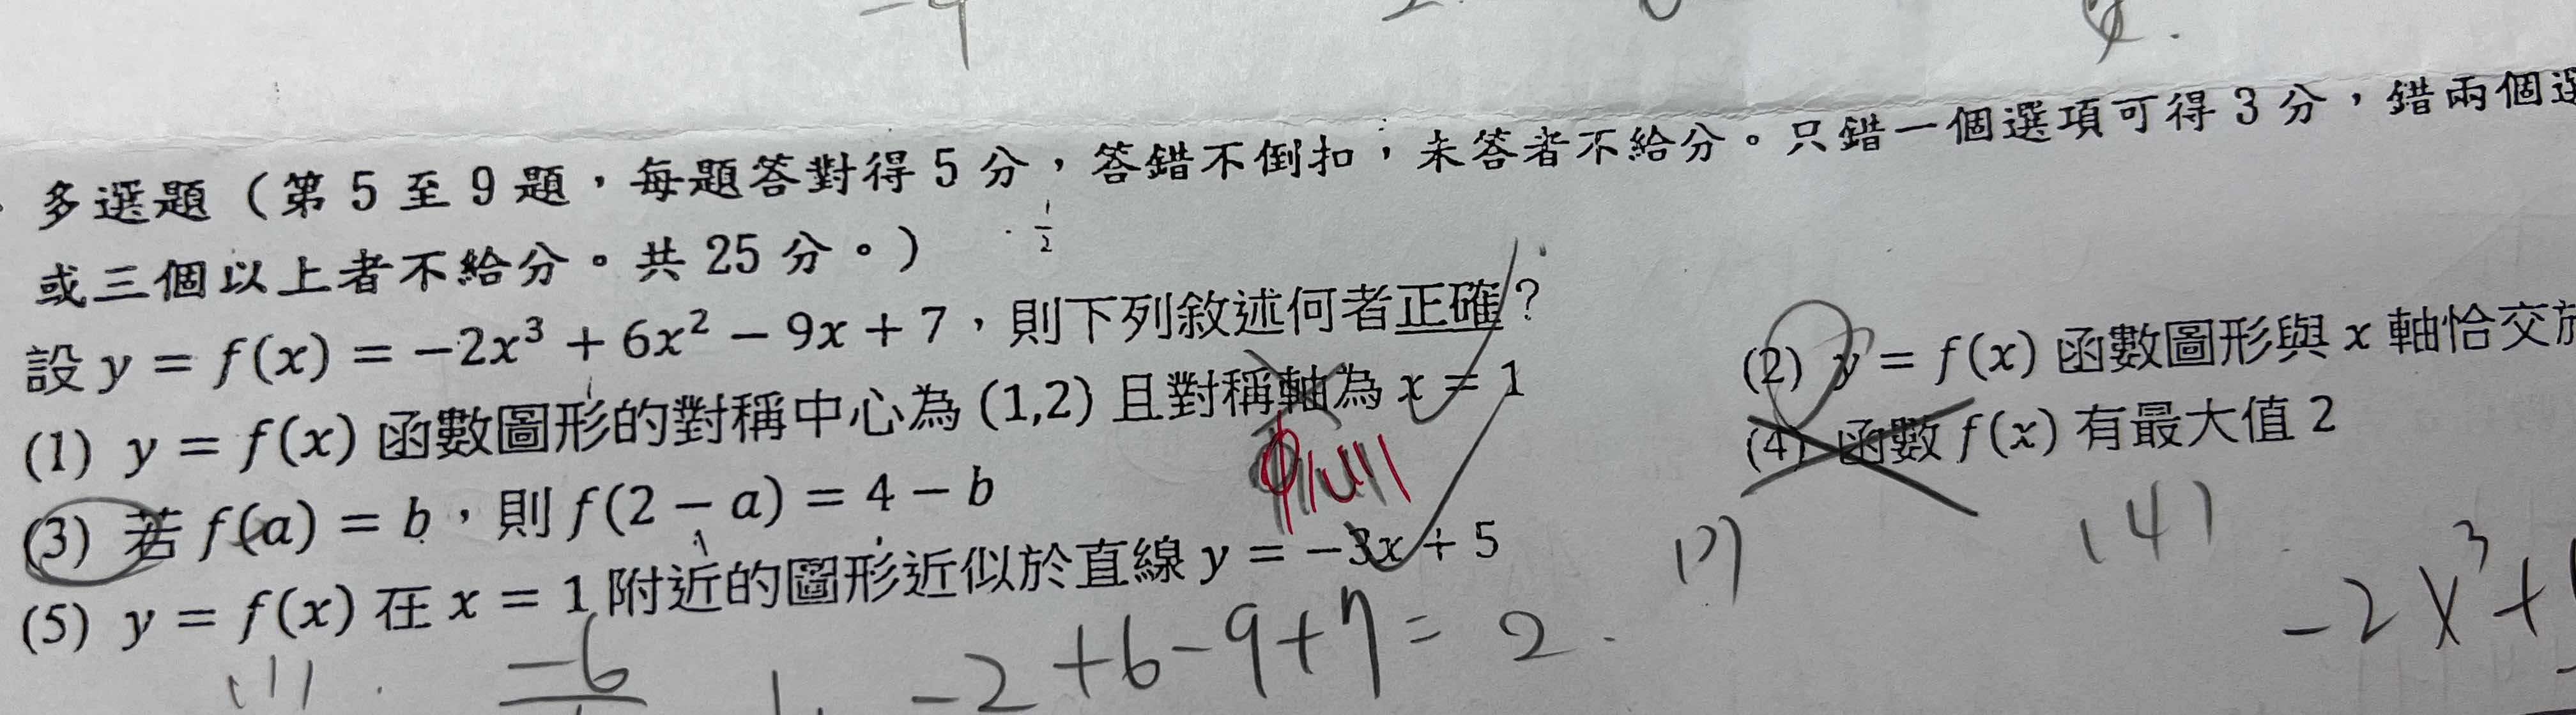 多選題（第 5 至 9 題，每題答對得 5 分，答錯不倒扣，未答者不給分。只錯一個選項可得 3 分，錯兩個選
或三個以上者不給分。共 25 分。）
1/2
設 y = f(x) = −2x³ + 6x² − 9x + 7，則下列敘述何者正確？
(1) y = f(x) 函數圖形的對稱中心為 (1,2) 且對稱軸為 x = 1
(2) y = f(x) 函數圖形與 x 軸恰交於
(3) 若 f(a) = b，則 f(2 − a) = 4 − b
(4) 函數 f(x) 有最大值 2
(5) y = f(x) 在 x = 1 附近的圖形近似於直線 y = −3x + 5
(4)
−2x³+
(1)
−6
−2+6−9+7=2